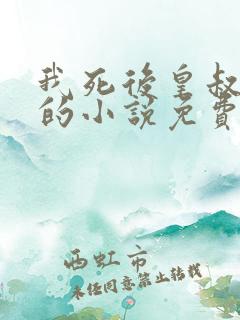 我死後皇叔
的小說免費
西虹市
未经同意禁止转载